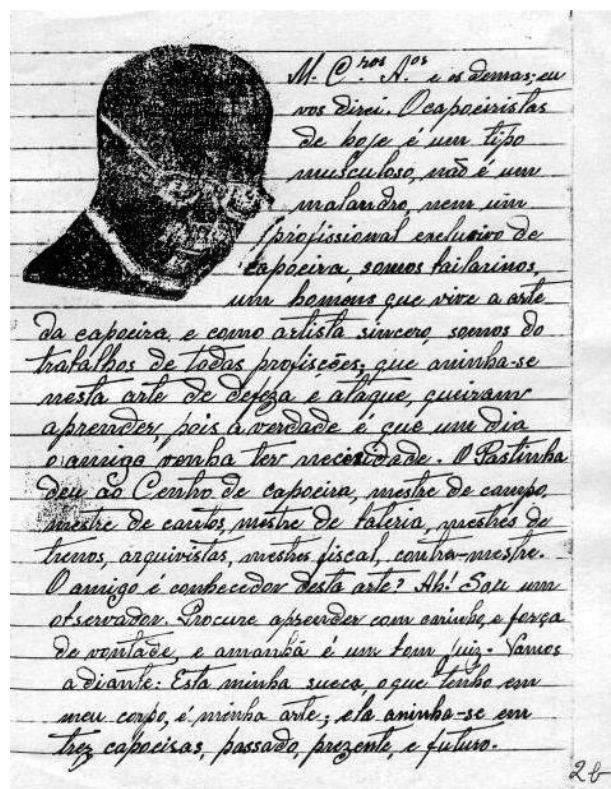 M. C.ros A.os e os demas; eu
vos direi. O capoeiristas
de hoje é um tipo
musculoso, não é um
malandro, nem um
profissional exclusivo de
capoeira, somos bailarinos,
um homens que vive a arte
da capoeira, e como artista sincero, somos do
trabalhos de todas profisções; que aninha-se
nesta arte de defeza e ataque, queiram
aprender, pois a verdade é que um dia
o amigo venha ter necesidade. O Pastinha
deu ao Centro de capoeira, mestre de campo,
mestre de cantos, mestre de bateria, mestres de
trenos, arquivistas, mestres fiscal, contra-mestre.
O amigo é conhecedor desta arte? Ah! Sou um
observador. Procure aprender com carinho, e força
de vontade, e amanhã é um bom juiz. Vamos
adiante: Esta minha sueca, o que tenho em
meu corpo, é minha arte; ela aninha-se em
trez capoeiras, passado, prezente, e futuro.
2b